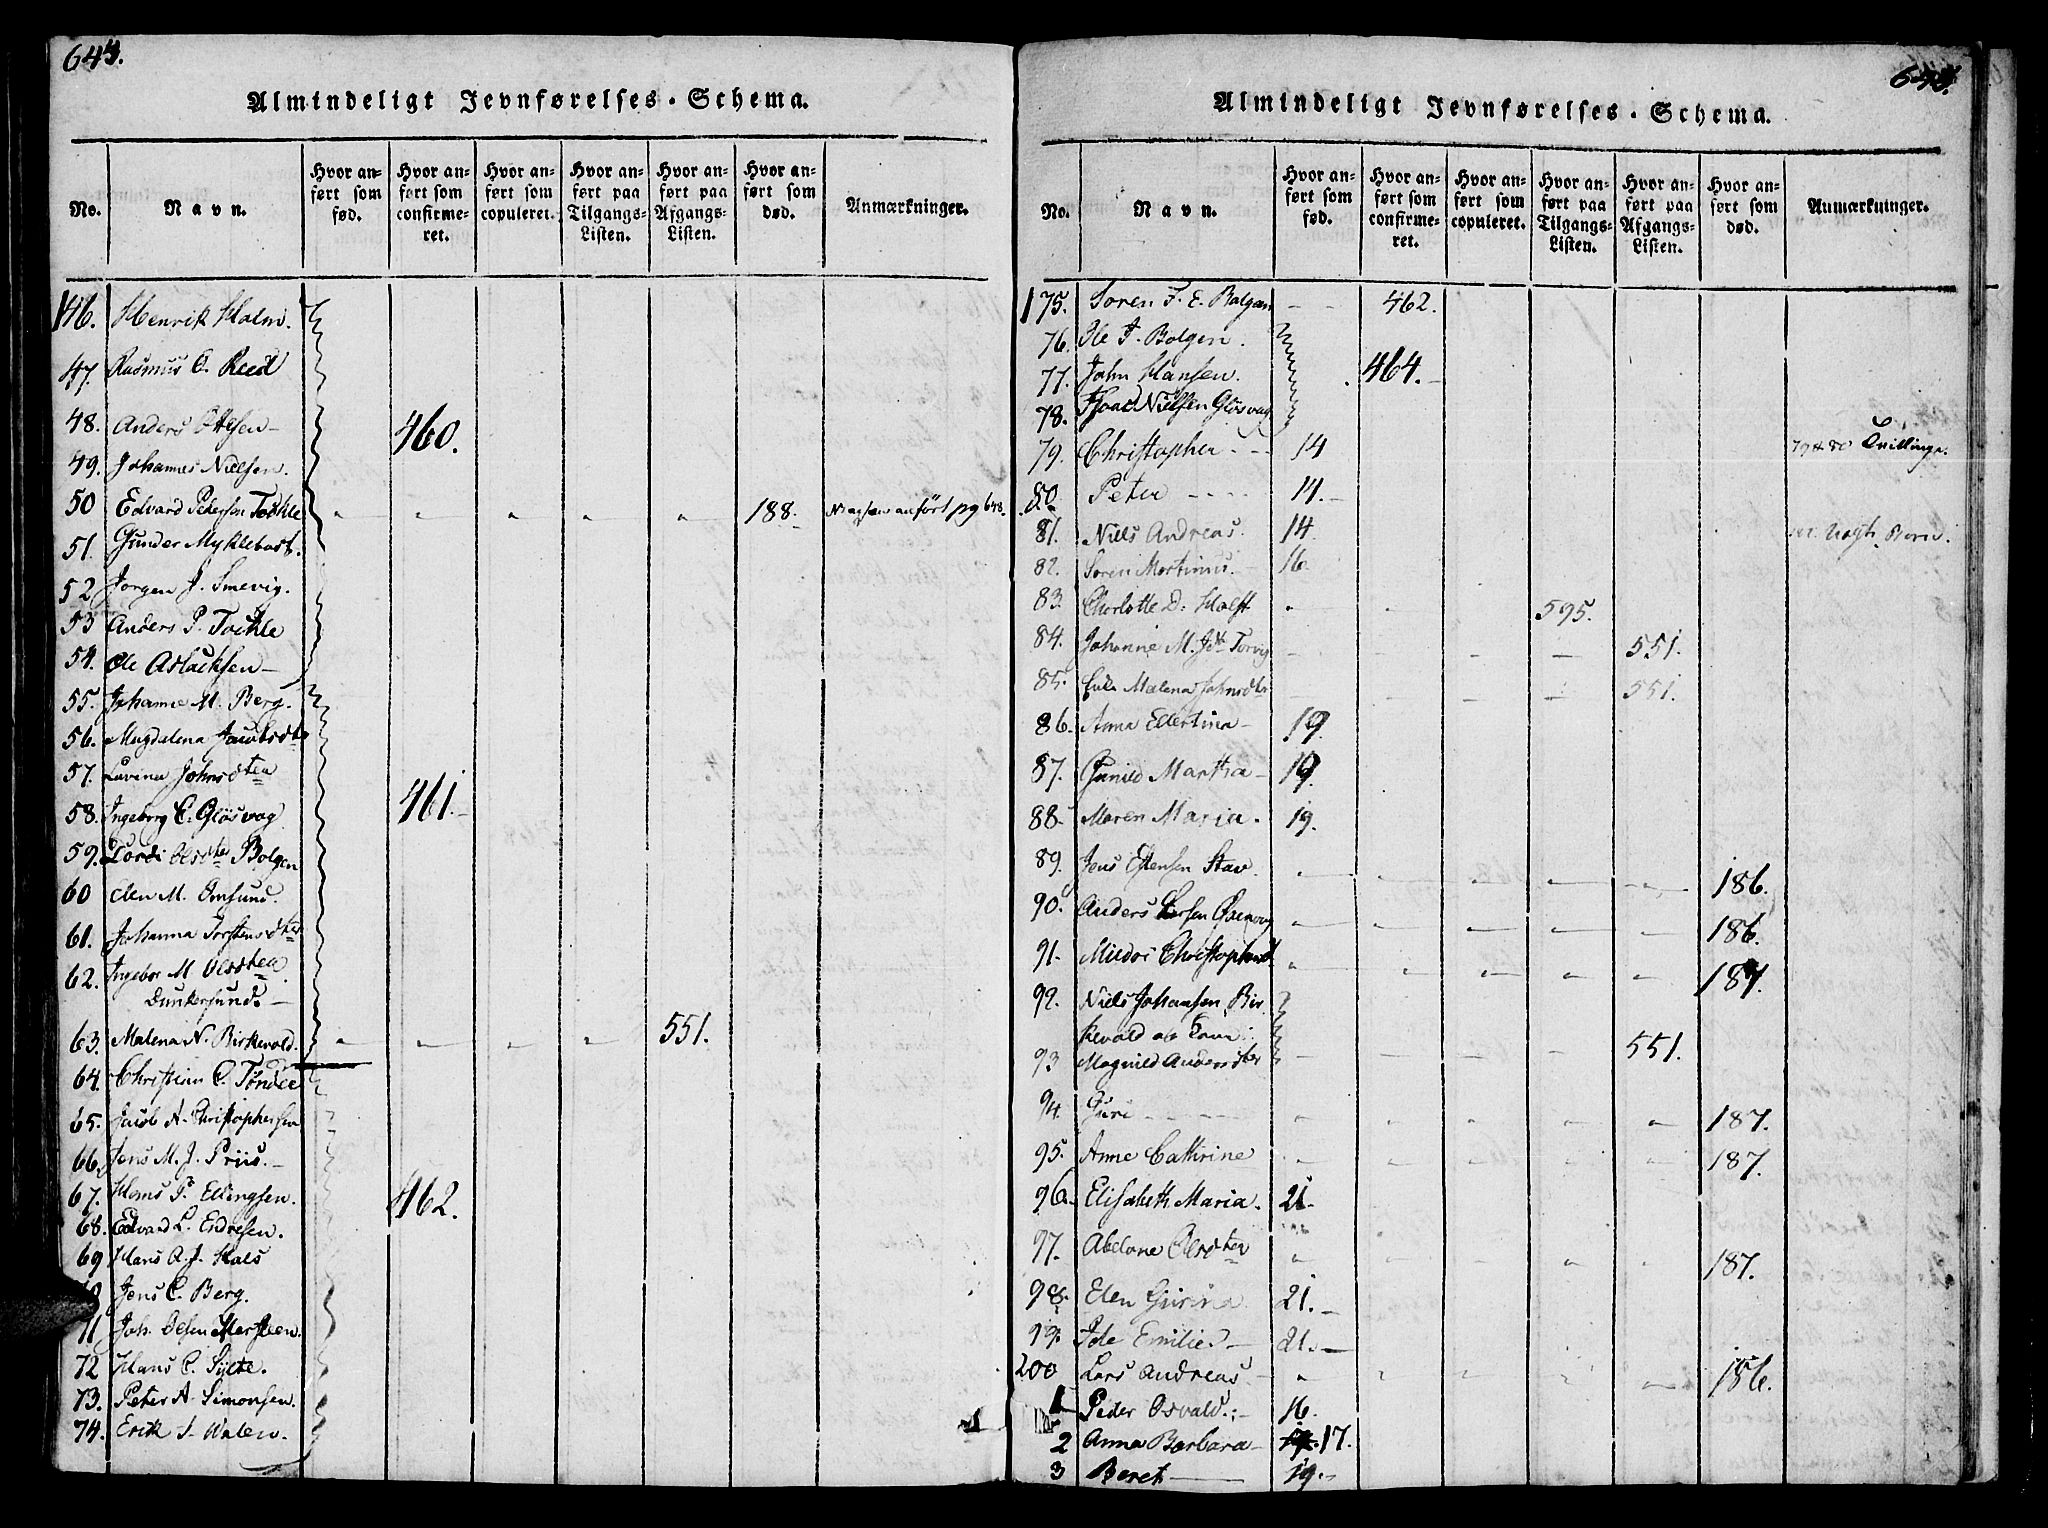 644.
Almindeligt Jevnførelses-Schema.
No.
Navn.
Hvor anført som fød.
Hvor anført som confirmeret.
Hvor anført som copuleret.
Hvor anført paa Tilgangs-Listen.
Hvor anført paa Afgangs-Listen.
Hvor anført som død.
Anmærkninger.
146. Henrik Holm.
47. Rasmus O. Reed
48. Anders Ottesen — 460.
49. Johannes Nielsen.
50 Edvard Pedersen Tøckle " " " " " 188. anført pg 648.
51. Gunder Myklebost.
52 Jørgen J. Smevig.
53 Anders P. Tøckle
54. Ole Aslacksen —
55. Johanne M. Berg.
56. Magdalena Jacobsdtr
57. Lavina Johnsdter
58. Ingeborg C. Glösvog 461.
59. Tordi Olsdter Bolgen
60 Elen M. Omsund.
61. Johanna Torstensdter
62. Ingebor M. Olsdter
Dunkersund. —
63. Malena N. Birkevold. " " " " 551.
64. Christian C. Tønder
65. Jacob A. Christophersen
66. Jens M. J. Priis. —
67. Hans P. Ellingsen. 462.
68. Edvard L. Endresen.
69 Hans A. J. Hals
70 Jens C. Berg.
71 Joh. Olsen
72 Hans C. Sylte.
73. Peter A. Simonsen.
74. Erik J. Walen.
645.
Almindeligt Jevnførelses-Schema.
No.
Navn.
Hvor anført som fød.
Hvor anført som confirmeret.
Hvor anført som copuleret.
Hvor anført paa Tilgangs-Listen.
Hvor anført paa Afgangs-Listen.
Hvor anført som død.
Anmærkninger.
175. Søren F. E. Bolgen — 462.
76. Ole J. Bolgen.
77. John Hansen. 464. —
78. Nielsen Glösvog
79. Christopher - - - 14 79 & 80 Tvillinge.
80. Peter - - - - 14. —
81. Niels Andreas. 14
82. Søren Mortinus. — 16
83. Charlotte D. Holst " " 595.
84. Johanne M. Torvig — — — — 551.
85. Malena Johnsdtr — — — — 551.
86. Anna Ellertina — 19
87. Gunild Martha — 19.
88. Maren Maria. 19.
89. Jens Estensen Stav. — — — — — 186.
90. Anders Øxenvog — — — — — 186.
91. Mildri Christophersd. " " " " " 187.
92. Niels Johansen Bir-
kevold og Kone: 551.
93 Magnild Andersdter
94. Guri - - - - " " " " " 187.
95. Anne Cathrine " " " " " 187.
96. Elisabeth Maria. 21.
97. Abelone Olsdter " " " " " 187.
98. Elen Gjurina. 21. —
99. Ide Emilie. — 21. —
200 Lars Andreas — " " " " — 186.
1 Peder Osvald. : — 16.
2 Anna Barbara — 17.
3 Beret — 19. —